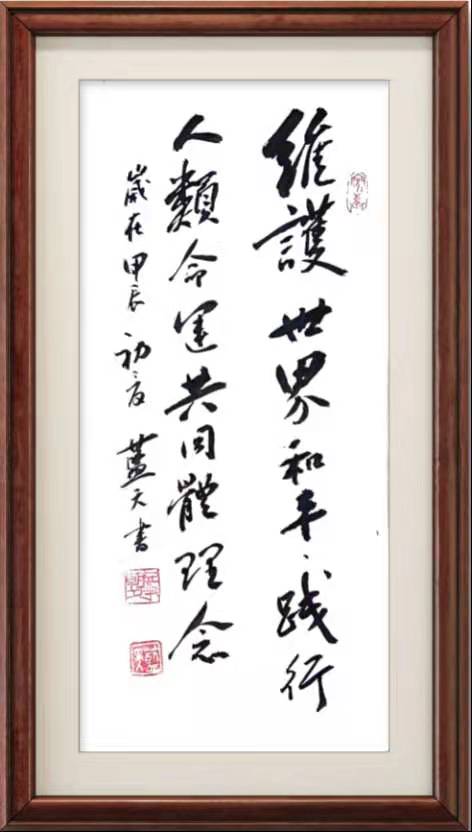 維護世界和平、践行
人類命运共同體理念
歲在甲辰初夏藍天書